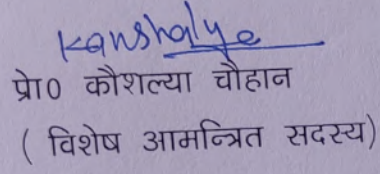 Kaushalye
प्रो0 कौशल्या चौहान
( विशेष आमन्त्रित सदस्य)